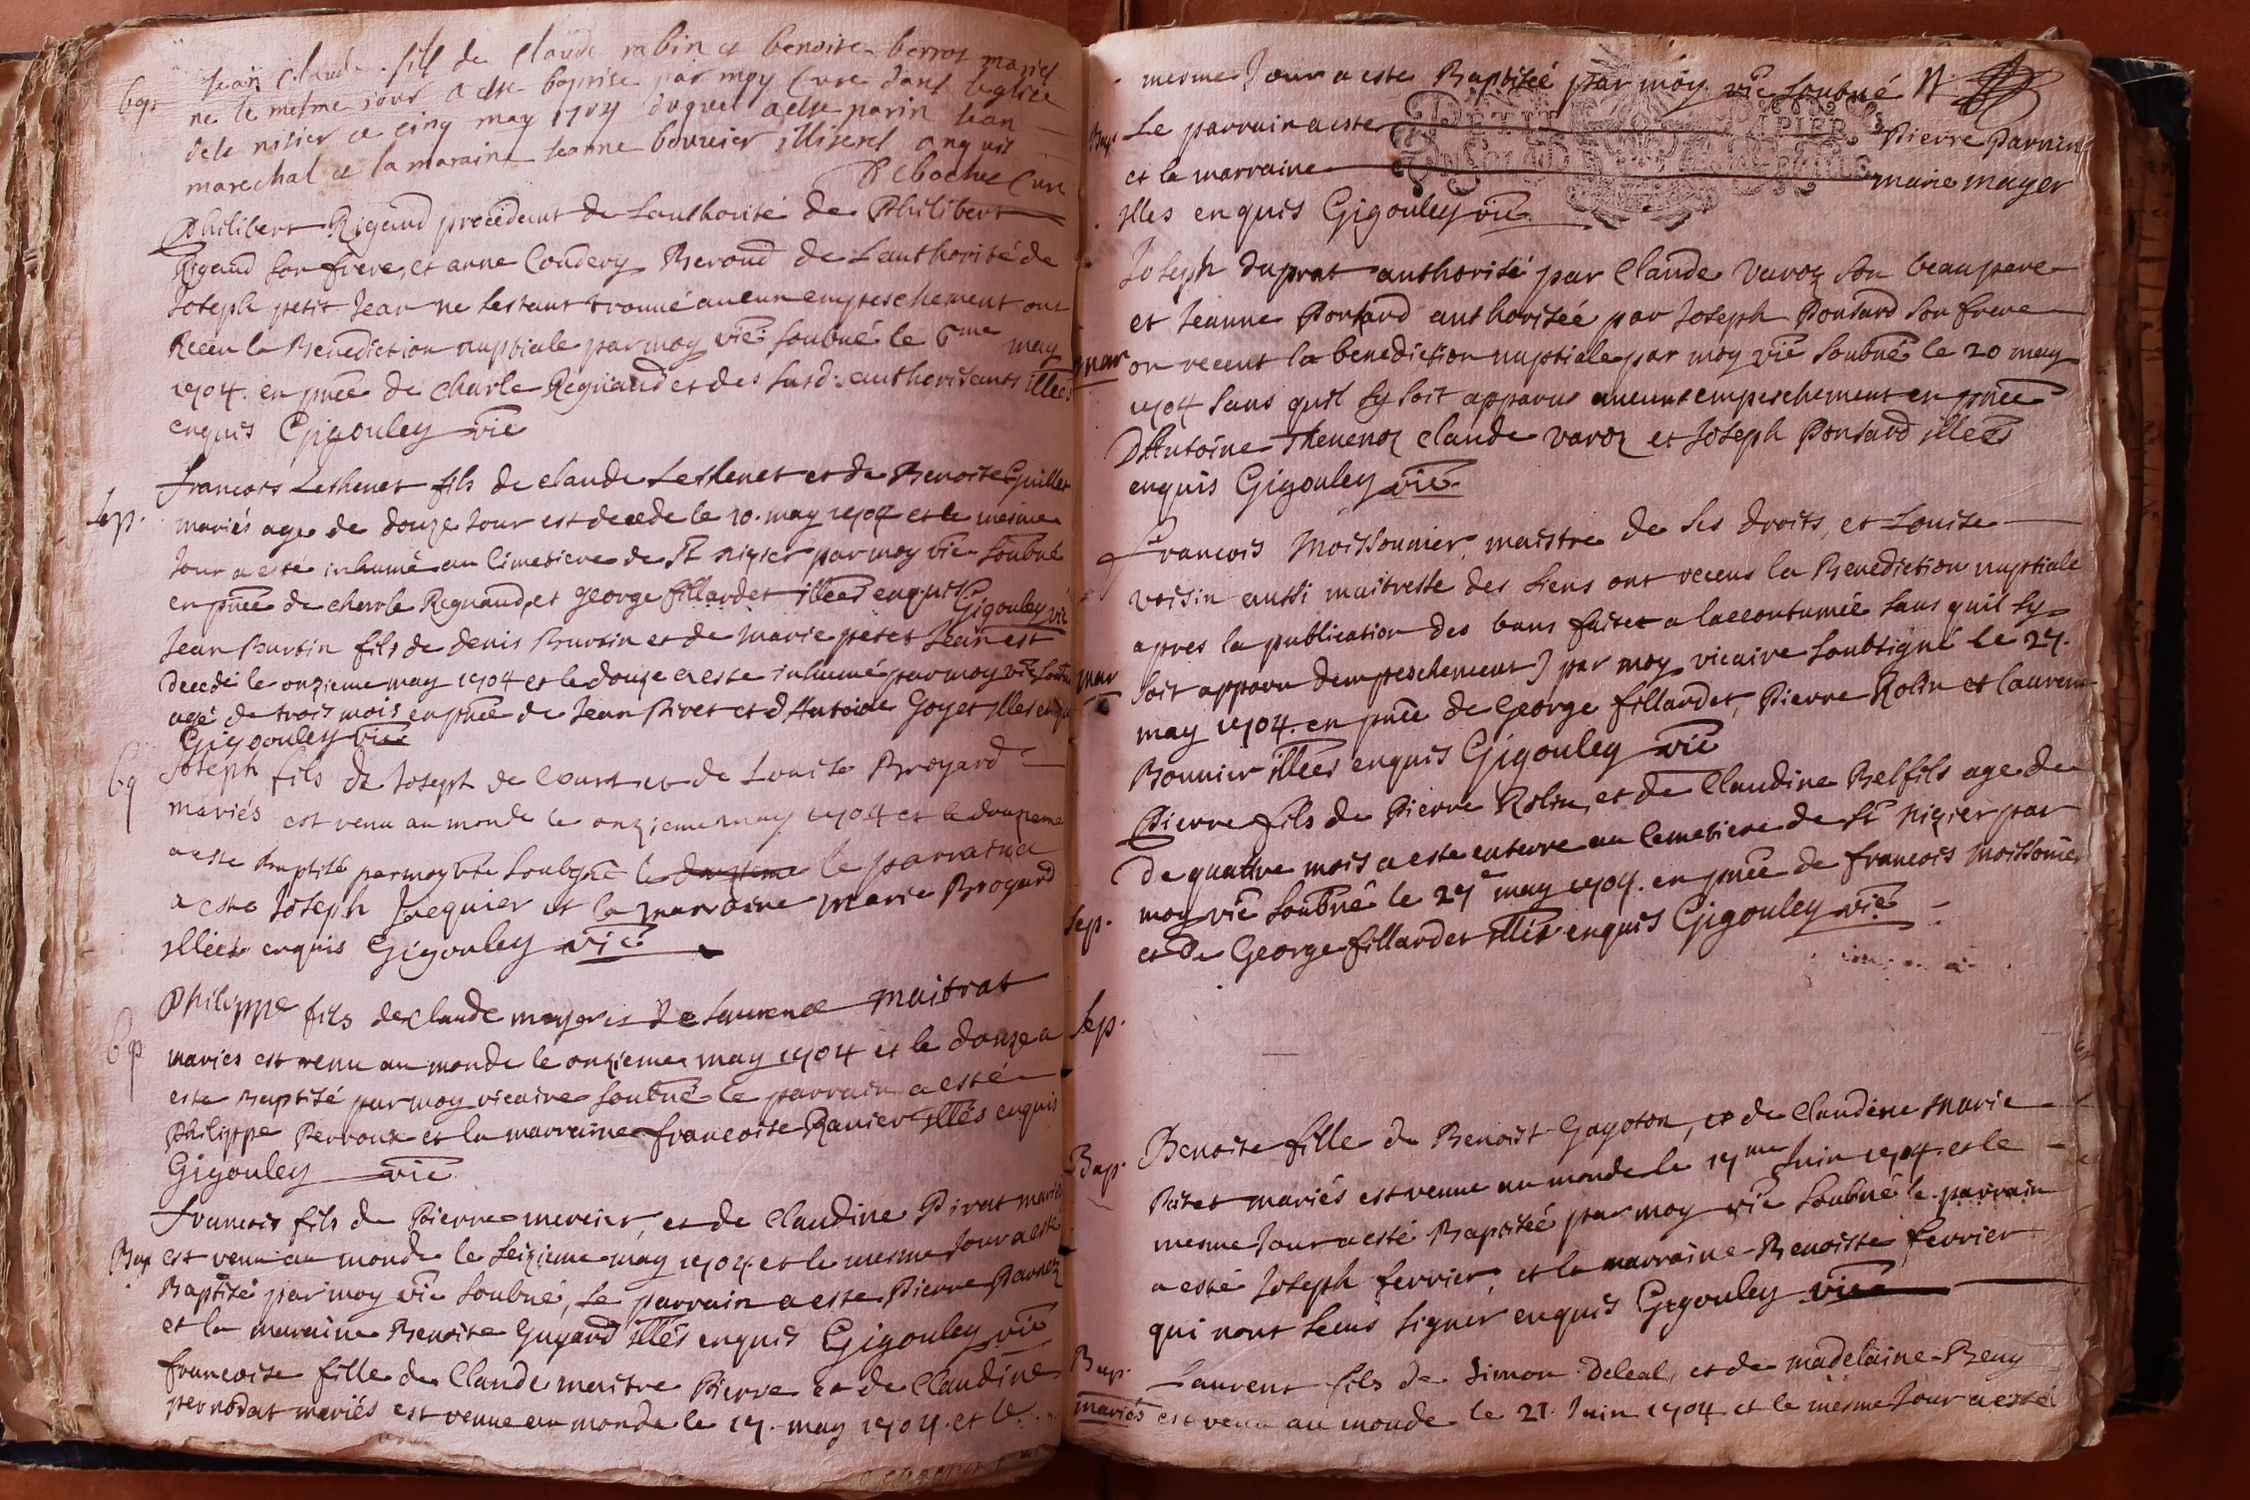 bap.
Jean Claude fils de Claude rabin et benoite berrot mariés
ne le mesme jour a este baptise par moy Curé dans leglise
de St nisier ce cinq may 1704 duquel a este parin Jean
marechal et la maraine Jeanne bouvier illiterés enquis
Reboche Curé
Philibert Rigaud procedeant de Lauthorité de Philibert
Rigaud son frere, et anne Coudery Beroud de Lauthorité de
Joseph petit Jean ne sestant trouué aucun empeschement ont
Receu la Benediction nuptiale par moy vic soubné le 6me may
1704. en pnce de charle Regnaud et des susd. authorisants illes
enquis Gigouley vic
Sep.
Francois Lethenet fils de Claude Lethenet et de Benoite Guillet
mariés age de douze Jour est decede le 10. may 1704 et le mesme
Jour a este inhumé au Cimetiere de St nizier par moy vic soubné
en pnce de charle Regnaud, et george fillardet illes enquis
Gigouley vic
Jean Burtin fils de denis Burtin et de Marie petet Jean est
Decedé le onzieme may 1704 et le douze a este inhumé par moy vic soubné
agé de trois mois en pnce de Jean Pivet et d'Antoine Goyet illes enquis
Gigouley vic
bap
Joseph fils de Joseph de Court et de Louise Broyard
mariés est venu au monde le onzieme may 1704 et le douzieme
a este Baptisé par moy vic soubné le douzieme le parrain a
a este Joseph Jcequier et la marraine marie Broyard
illes enquis Gigouley vic
bap
Philippe fils de Claude mayer et de Laurence Maitrat
mariés est venu au monde le onzieme may 1704 et le douze a
este Baptisé par moy vicaire soubné le parrain a esté
Philippe Perroux et la marraine francoise Ranier illes enquis
Gigouley vic
Francois fils de Pierre mercier, et de Claudine Pirat mariés
Bap est venu au monde le seizieme may 1704. et le mesme Jour a esté
Baptisé par moy vic soubné, Le parrain a este Pierre
et la maraine Benoite Guyard illes enquis Gigouley vic
francoise fille de Claude maitre Pierre et de Claudine
pernodat mariés est venue au monde le 17. may 1704. et le
mesme Jour a este Baptiseé par moy vic soubné
Bap. Le parrain a este Pierre
et la marraine marie mayer
illes enquis Gigouley vic
Joseph duprat authorisé par Claude Varoz son beau pere
et Jeanne Ponsard authoriseé par Joseph Ponsard son frere
mar on receut la benediction nuptiale par moy vic soubné le 20 may
1704 sans quil sy soit apparus aucuns empeschement en pnce
D'Antoine Thevenoz Claude Varoz et Joseph Ponsard illes
enquis Gigouley vic
Francois Moissonnier, maistre de ses droits, et Louise
voisin aussi maitresse des siens ont receus la Benediction nuptiale
apres la publication des bans faites a laccoutumée sans quil sy
mar soit apparu dempeschement) par moy vicaire soubsigné le 27.
may 1704. en pnce de George fillardet, Pierre Rolin et Laurent
Bonnier illes enquis Gigouley vic
Pierre fils de Pierre Rolin, et de Claudine Belfils age de
de quattre mois a este enterre au Cemetiere de St nizier par
moy vic soubné le 27e may 1704. en pnce de francois Moissonier
Sep. et de George fillardet illes enquis Gigouley vic
Sep.
Benoite fille de Benoist Gayoton, et de Claudine Marie
Bap. Pitet mariés est venue au monde le 17me Juin 1704. et le
mesme Jour a esté Baptiseé par moy vic soubné le parrain
a esté Joseph ferrier, et la marraine Benoiste ferrier
qui nont sceus signer enquis Gigouley vic
Bap.
Laurent fils de Simon Deleal, et de madelaine Beny
mariés est venu au monde le 21. Juin 1704 et le mesme Jour a esté